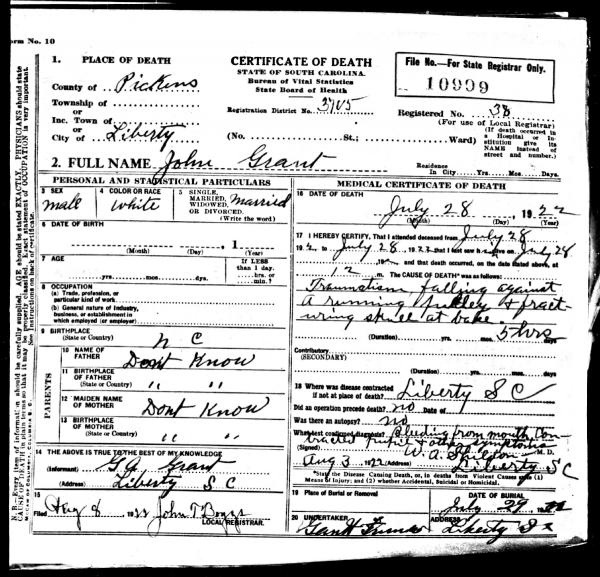 Form No. 10
1. PLACE OF DEATH
County of Pickens
Township of
or
Inc. Town of
or
City of Liberty
CERTIFICATE OF DEATH
STATE OF SOUTH CAROLINA.
Bureau of Vital Statistics
State Board of Health
Registration District No. 3705
(No. St.; Ward)
File No.—For State Registrar Only.
10999
Registered No. 38
(For use of Local Registrar)
(If death occurred in
a Hospital or In-
stitution give its
NAME instead of
street and number.)
2. FULL NAME John Grant
Residence
In City Yrs. Mos. Days.
PERSONAL AND STATISTICAL PARTICULARS
3 SEX
male
4 COLOR OR RACE
white
5 SINGLE,
MARRIED,
WIDOWED,
OR DIVORCED.
(Write the word)
Married
6 DATE OF BIRTH
, 1
(Month) (Day) (Year)
7 AGE
yrs. mos. days.
If LESS
than 1 day.
hrs. or
min.?
8 OCCUPATION
(a) Trade, profession, or
particular kind of work
(b) General nature of Industry,
business, or establishment in
which employed (or employer)
9 BIRTHPLACE
(State or Country)
N C
PARENTS
10 NAME OF
FATHER
Dont Know
11 BIRTHPLACE
OF FATHER
(State or Country)
" "
12 MAIDEN NAME
OF MOTHER
Dont Know
13 BIRTHPLACE
OF MOTHER
(State or Country)
" "
14 THE ABOVE IS TRUE TO THE BEST OF MY KNOWLEDGE
(Informant) Grant
(Address) Liberty S C
15
Filed Aug 8 1922 John T Boggs
LOCAL REGISTRAR.
MEDICAL CERTIFICATE OF DEATH
16 DATE OF DEATH
July 28, 1922
(Month) (Day) (Year)
17 I HEREBY CERTIFY, That I attended deceased from July 28
192 to July 28 1922 that I last saw h alive on July 28
192 and that death occurred, on the date stated above, at
12 m. The CAUSE OF DEATH* was as follows:
Traumatism, falling against
a running & fract-
uring skull at
(Duration) yrs. mos. 5 hrs days
Contributory
(SECONDARY)
(Duration) yrs. mos. days
18 Where was disease contracted
if not at place of death? Liberty S C
Did an operation precede death? no Date of
Was there an autopsy? no
What test confirmed diagnosis? Bleeding from mouth, Con-
tracted & other symptoms
(Signed) W. A. M. D.
Aug 3 1922 (Address) Liberty S C
*State the Disease Causing Death, or, in deaths from Violent Causes state (1)
Means of Injury; and (2) whether Accidental, Suicidal or Homicidal.
19 Place of Burial or Removal
DATE OF BURIAL
July 29 192
20 UNDERTAKER
ADDRESS
Liberty S C